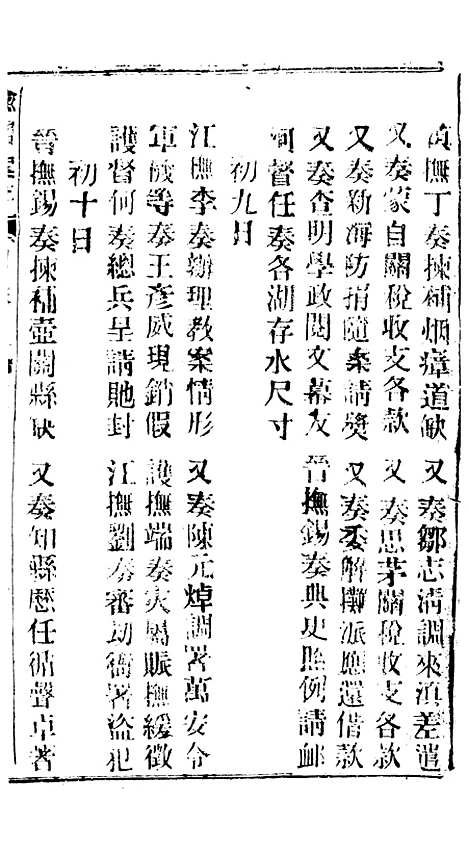 滇撫丁奏揀補烟瘴道缺　又奏鄒志淸調來滇差遣
又奏蒙自關稅收支各款　又奏思茅關稅收支各款
又奏新海防捐隨案請獎　又奏委解攤派應還借款
又奏查明學政閱文幕友　晉撫錫奏典史照例請卹
河督任奏各湖存水尺寸
初九日
江撫李奏辦理教案情形　又奏陳元焯調署萬安令
軍機等奏王彥威現銷假　護撫端奏災屬賑撫緩徵
護督何奏總兵呈請貤封　江撫劉奏審劫衙署盜犯
初十日
晉撫錫奏揀補壺關縣缺　又奏知縣歷任循聲卓著